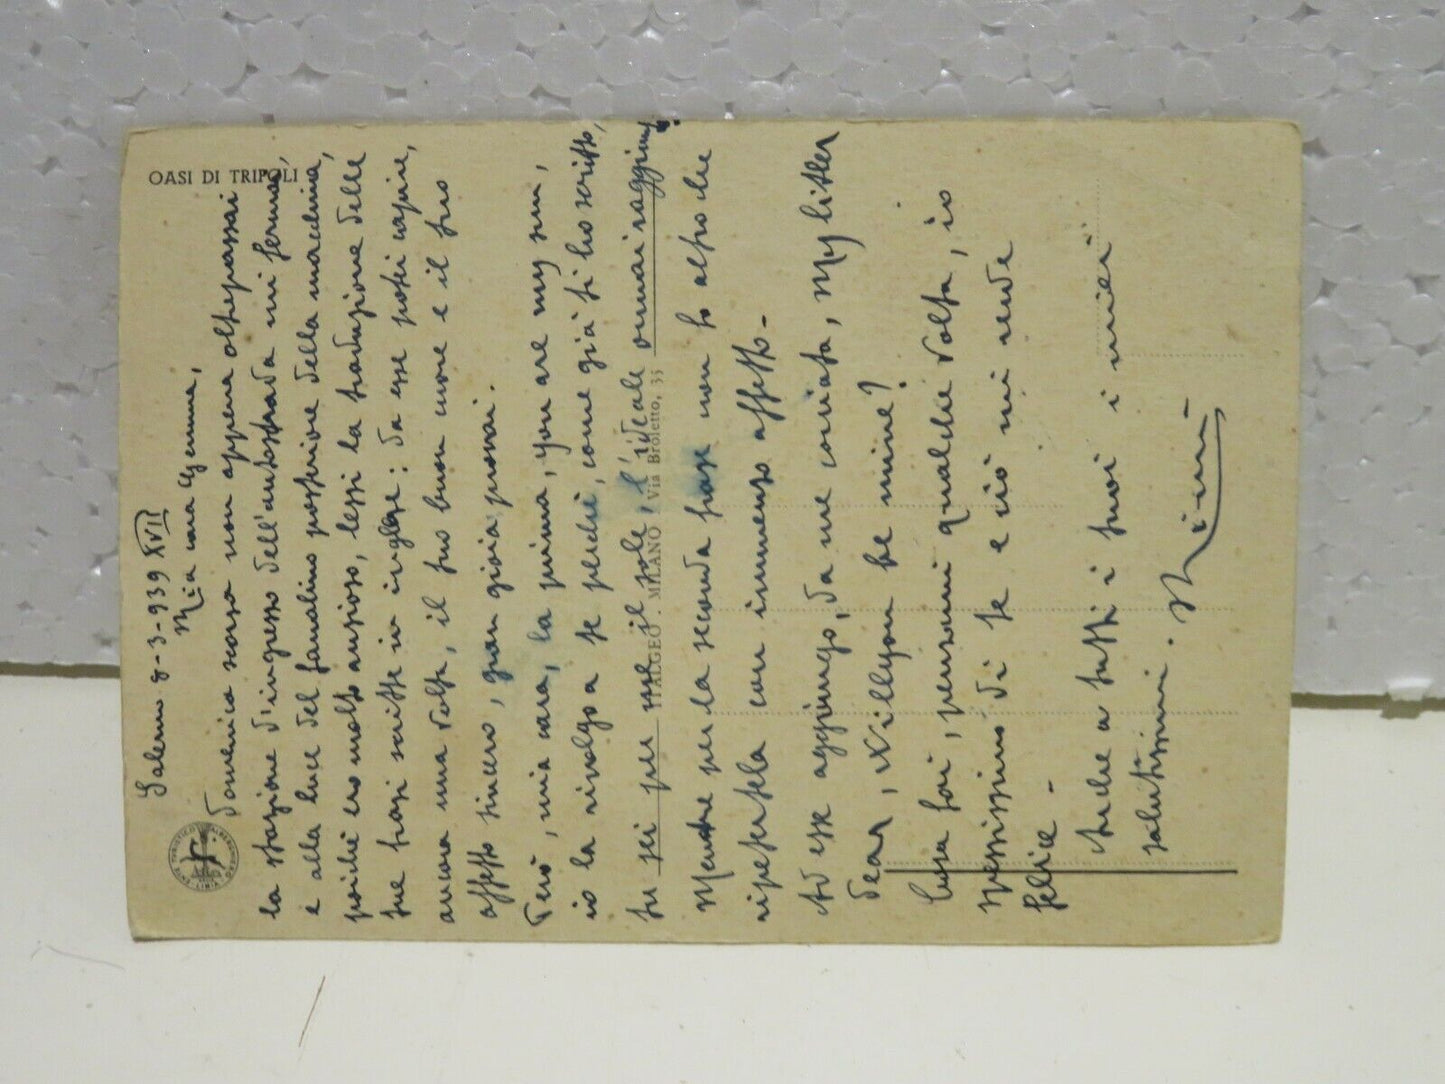 OASI DI TRIPOLI
ENTE TURISTICO ALBERGHIERO LIBIA
ITALGEO . MILANO Via Broletto, 35
Salerno 8-3-939 XVII
Mia cara Gemma,
Domenica scorsa non appena oltrepassai
la stazione d'ingresso dell'autostrada mi fermai,
e alla luce del fanalino posteriore della macchina,
poiché ero molto ansioso, lessi la traduzione delle
tue frasi scritte in inglese: da esse potei capire,
ancora una volta, il tuo buon cuore e il tuo
affetto sincero, gran gioia provai.
Però, mia cara, la prima, you are my sun,
io la rivolgo a te perché, come già ti ho scritto,
tu sei per me il sole, l'ideale ormai raggiunto.
Mentre per la seconda frase non fo altro che
ripetertela con immenso affetto.
Ad esse aggiungo, da me coniata, My litler
dear, Willyou be mine?
Cosa fai, pensami qualche volta, io
spessissimo di te e ciò mi rende
felice.
Anche a tutti i tuoi i miei
salutissimi.